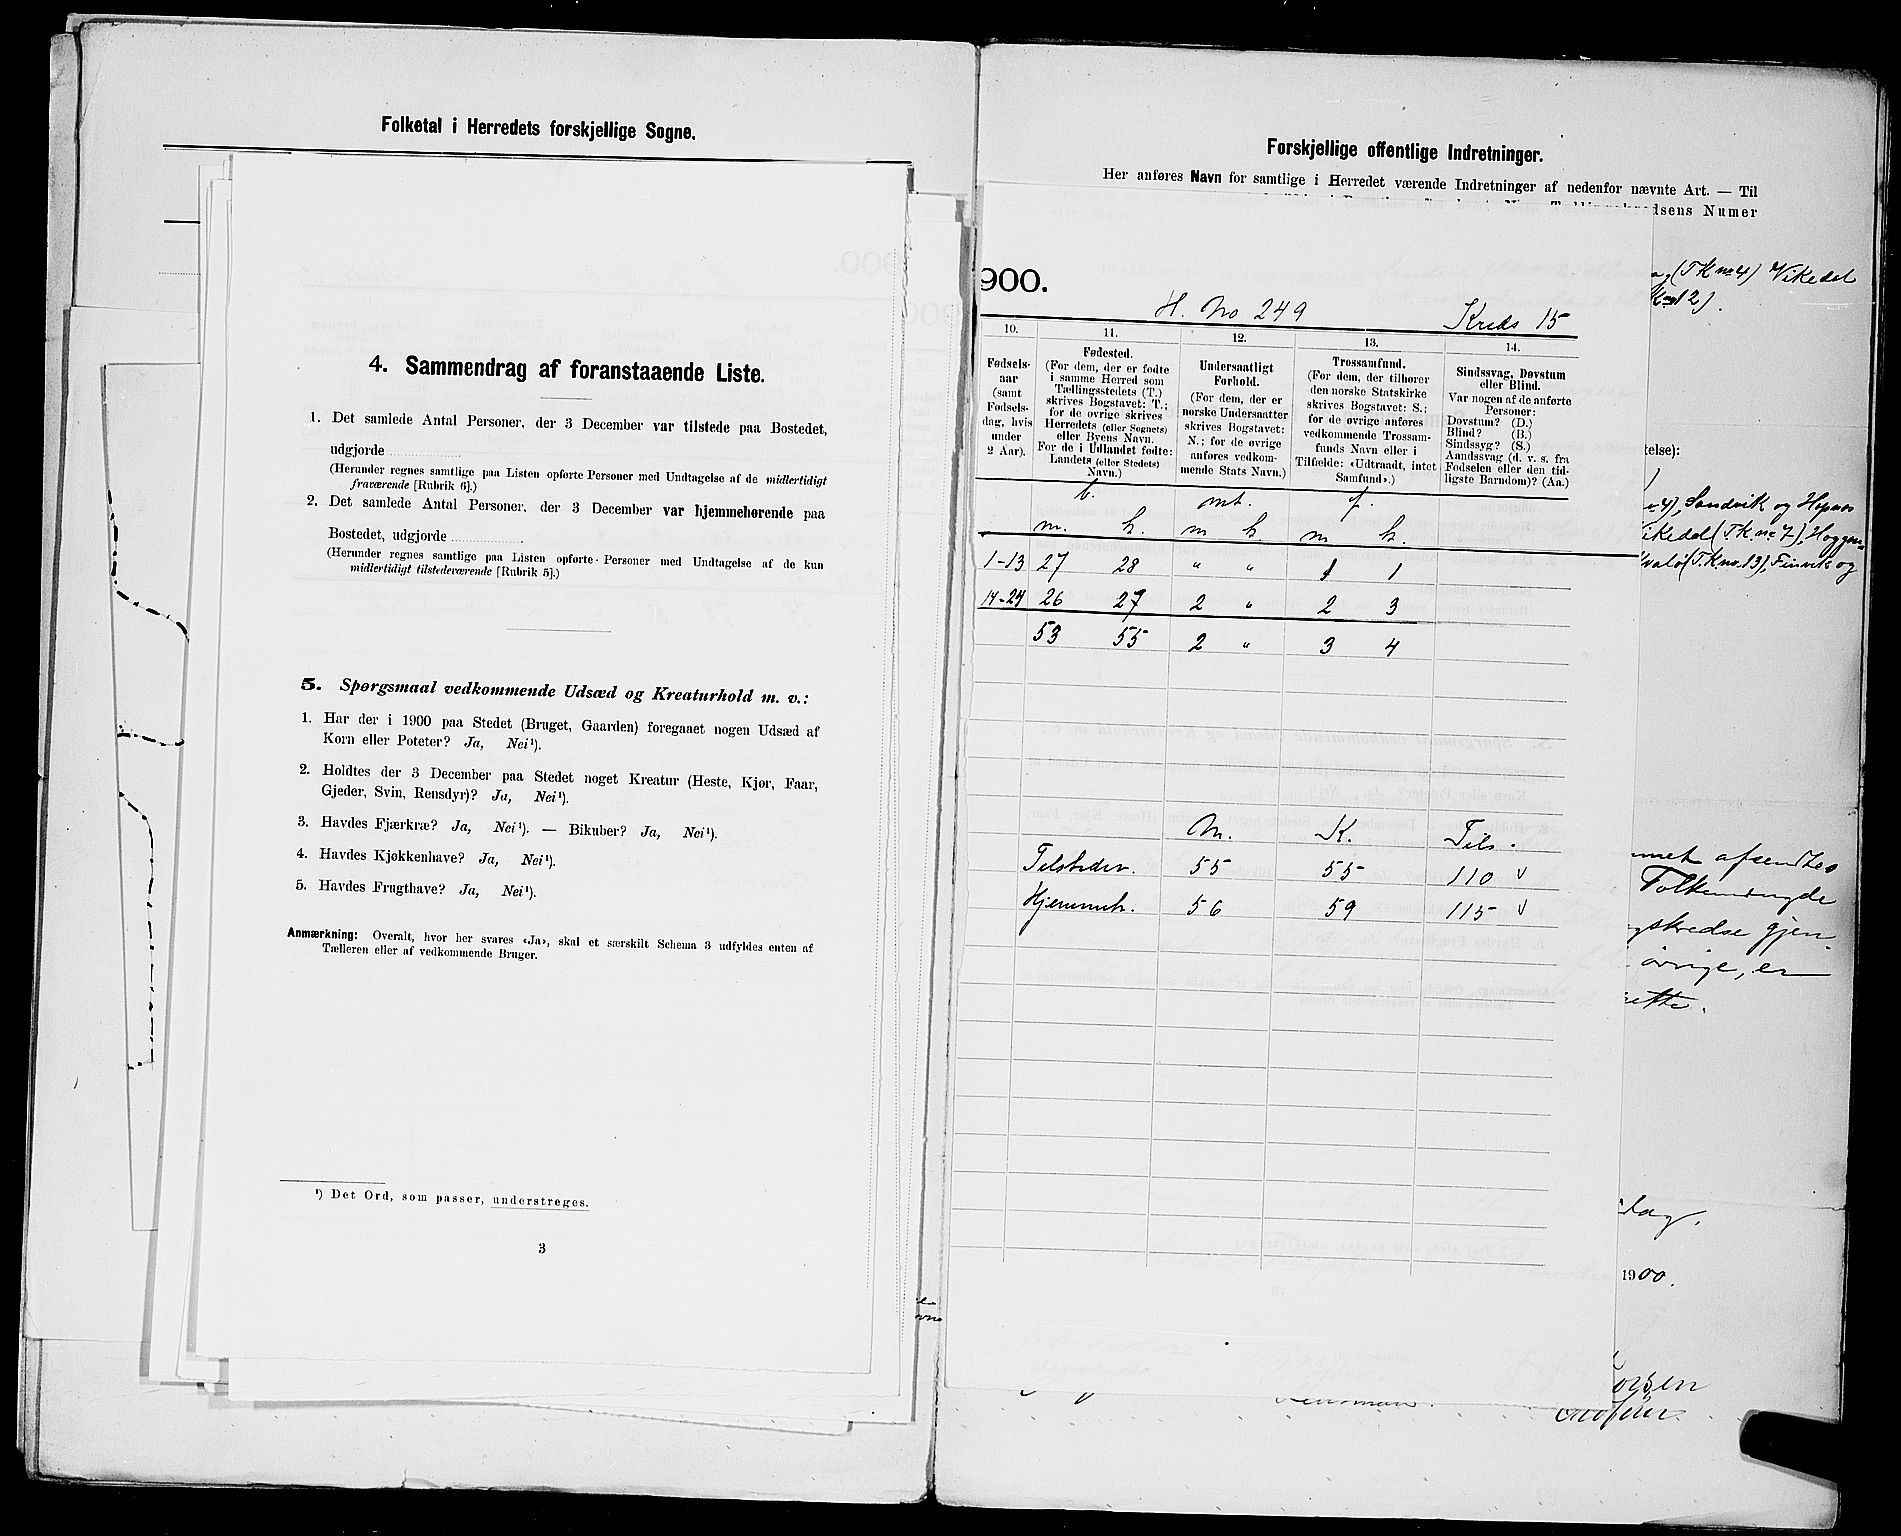 Folketal i Herredets forskjellige Sogne.
4. Sammendrag af foranstaaende Liste.
1. Det samlede Antal Personer, der 3 December var tilstede paa Bostedet,
udgjorde
(Herunder regnes samtlige paa Listen opførte Personer med Undtagelse af de midlertidigt
fraværende [Rubrik 6].)
2. Det samlede Antal Personer, der 3 December var hjemmehørende paa
Bostedet, udgjorde
(Herunder regnes samtlige paa Listen opførte Personer med Undtagelse af de kun
midlertidigt tilstedeværende [Rubrik 5].)
5. Spørgsmaal vedkommende Udsæd og Kreaturhold m. v.:
1. Har der i 1900 paa Stedet (Bruget, Gaarden) foregaaet nogen Udsæd af
Korn eller Poteter? Ja, Nei¹).
2. Holdtes der 3 December paa Stedet noget Kreatur (Heste, Kjør, Faar,
Gjeder, Svin, Rensdyr)? Ja, Nei¹).
3. Havdes Fjærkræ? Ja, Nei¹). — Bikuber? Ja, Nei¹).
4. Havdes Kjøkkenhave? Ja, Nei¹).
5. Havdes Frugthave? Ja, Nei¹).
Anmærkning: Overalt, hvor her svares «Ja», skal et særskilt Schema 3 udfyldes enten af
Tælleren eller af vedkommende Bruger.
¹) Det Ord, som passer, understreges.
3
Forskjellige offentlige Indretninger.
Her anføres Navn for samtlige i Herredet værende Indretninger af nedenfor nævnte Art. — Til
dsens Numer
(T.K. no 4) Vikedal
12).
900.
H. No 249 Kreds 15
10. 11. 12. 13. 14.
Fødsels-
aar
(samt
Fødsels-
dag, hvis
under
2 Aar).
Fødested.
(For dem, der er fødte
i samme Herred som
Tællingsstedets (T.)
skrives Bogstavet: T.;
for de øvrige skrives
Herredets (eller Sognets)
eller Byens Navn.
For de i Udlandet fødte:
Landets (eller Stedets)
Navn.)
Undersaatligt
Forhold.
(For dem, der er
norske Undersaatter
skrives Bogstavet:
N.; for de øvrige
anføres vedkom-
mende Stats Navn.)
Trossamfund.
(For dem, der tilhører
den norske Statskirke
skrives Bogstavet: S.;
for de øvrige anføres
vedkommende Trossam-
funds Navn eller i
Tilfælde: «Udtraadt, intet
Samfund».)
Sindssvag, Døvstum
eller Blind.
Var nogen af de anførte
Personer:
Døvstum? (D.)
Blind? (B.)
Sindssyg? (S.)
Aandssvag (d. v. s. fra
Fødselen eller den tid-
ligste Barndom)? (Aa.)
telse):
b. mt. f.
m. k. m k. m k.
1-13 27 28 " " 1 1
14-24 26 27 2 " 2 3
53 55 2 " 3 4
M. K. Tils.
Tilstedev. 55 55 110
Hjemmeh. 56 59 115
Sandvik og Hopnes
(T.K. no 7), Hoggen-
(T.K. no. 13), Finvik og
afsendtes
Folkemængde
skredse gjen-
øvrige, er
rette.
dag.
1900.
Lensmand.